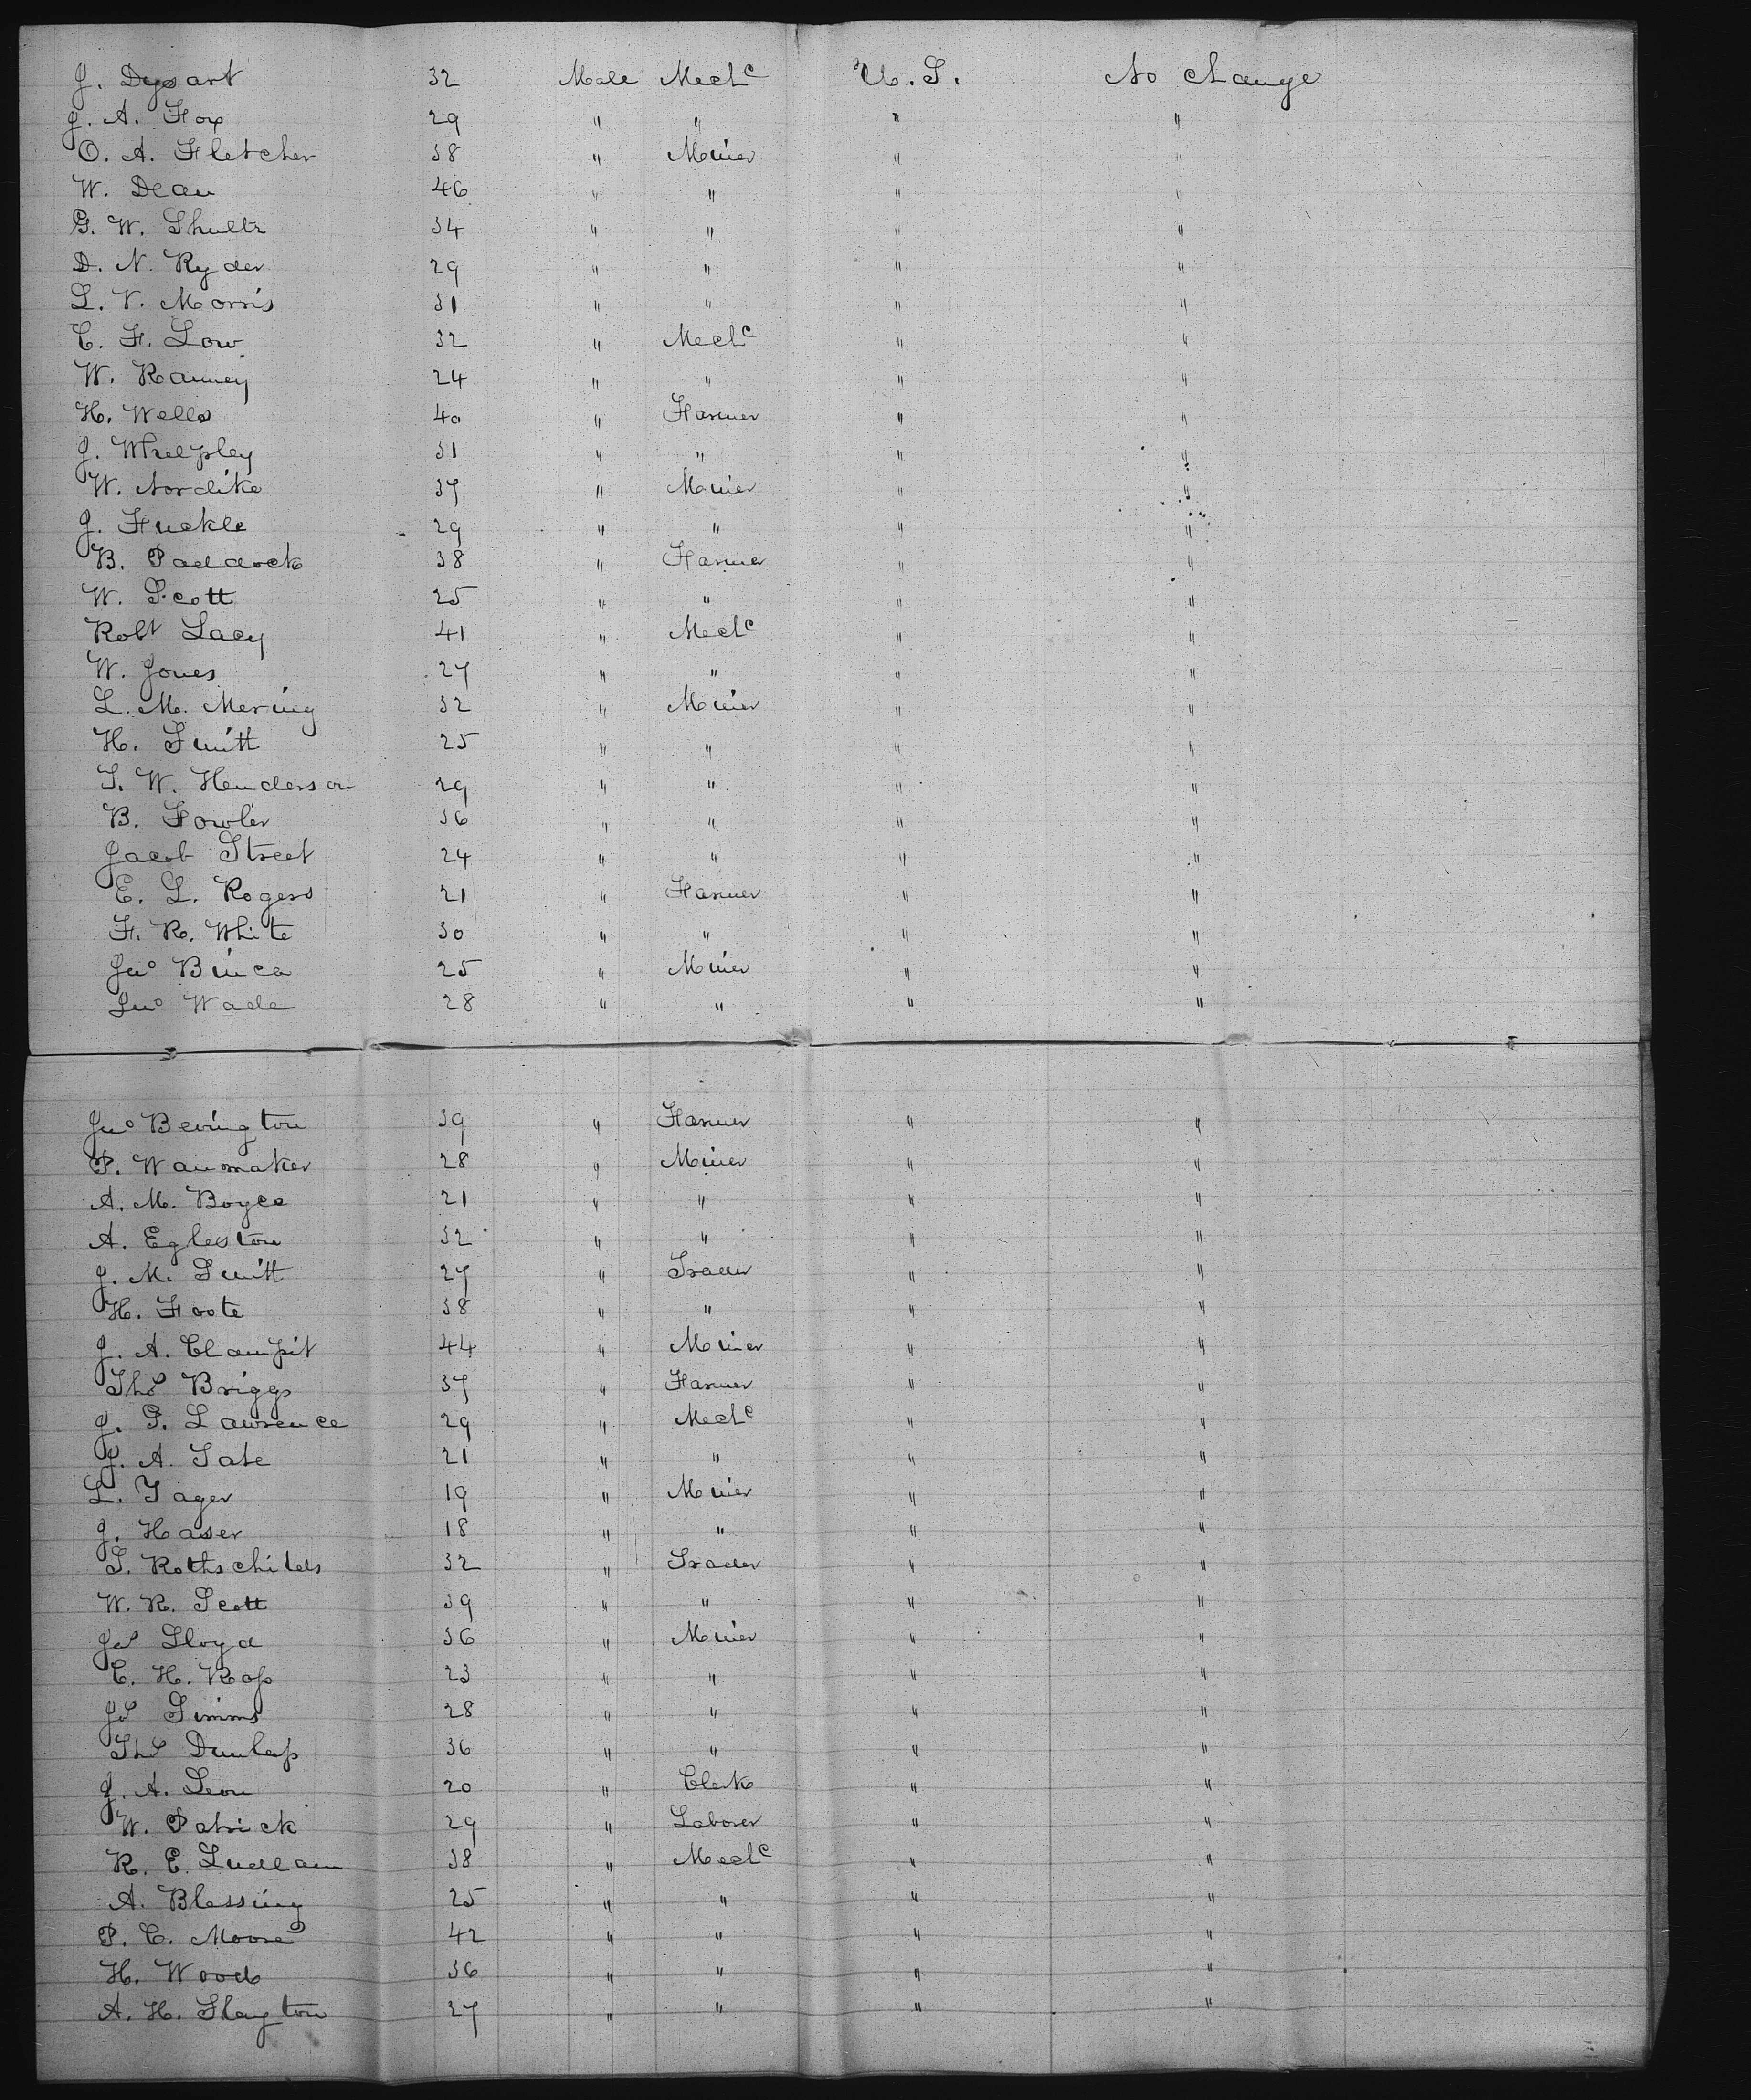 J. Dysart 32 Male Mechc U.S. No change
J. A. Fox 29 " " " "
O. A. Fletcher 38 " Miner " "
W. Dean 46 " " " "
G. W. Shultz 34 " " " "
D. N. Ryder 29 " " " "
L. V. Morris 31 " " " "
C. F. Low 32 " Mechc " "
W. Ranney 24 " " " "
H. Wells 40 " Farmer " "
J. Whelpley 31 " " " "
W. Nordike 37 " Miner " "
J. Fuckle 29 " " " "
B. Paddock 38 " Farmer " "
W. Scott 25 " " " "
Robt Lacy 41 " Mechc " "
W. Jones 27 " " " "
L. M. Mering 32 " Miner " "
H. Smith 25 " " " "
T. W. Henderson 29 " " " "
B. Fowler 36 " " " "
Jacob Street 24 " " " "
E. L. Rogers 21 " Farmer " "
F. R. White 30 " " " "
Jno Binca 25 " Miner " "
Jno Wade 28 " " " "
Jno Bevington 39 " Farmer " "
P. Wanmaker 28 " Miner " "
A. M. Boyce 21 " " " "
A. Egleston 32 " " " "
J. M. Smith 27 " Trader " "
H. Foote 38 " " " "
J. A. Clampit 44 " Miner " "
Thos Briggs 37 " Farmer " "
J. G. Lawrence 29 " Mechc " "
J. A. Tate 21 " " " "
L. Yager 19 " Miner " "
J. Haser 18 " " " "
S. Rothschilds 32 " Trader " "
W. R. Scott 39 " " " "
Jas Lloyd 36 " Miner " "
C. H. Ross 23 " " " "
Js Simms 28 " " " "
Thos Dunlap 36 " " " "
J. A. Leon 20 " Clerk " "
W. Patrick 29 " Laborer " "
R. E. Ludlam 38 " Mechc " "
A. Blessing 25 " " " "
P. C. Moore 42 " " " "
H. Wood 36 " " " "
A. H. Slayton 27 " " " "